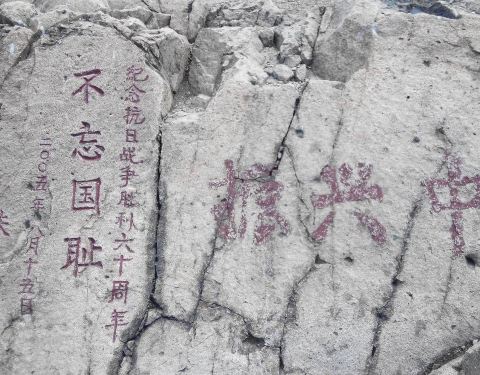 纪念抗日战争胜利六十周年
不忘国耻
二00五年八月十五日
振兴中